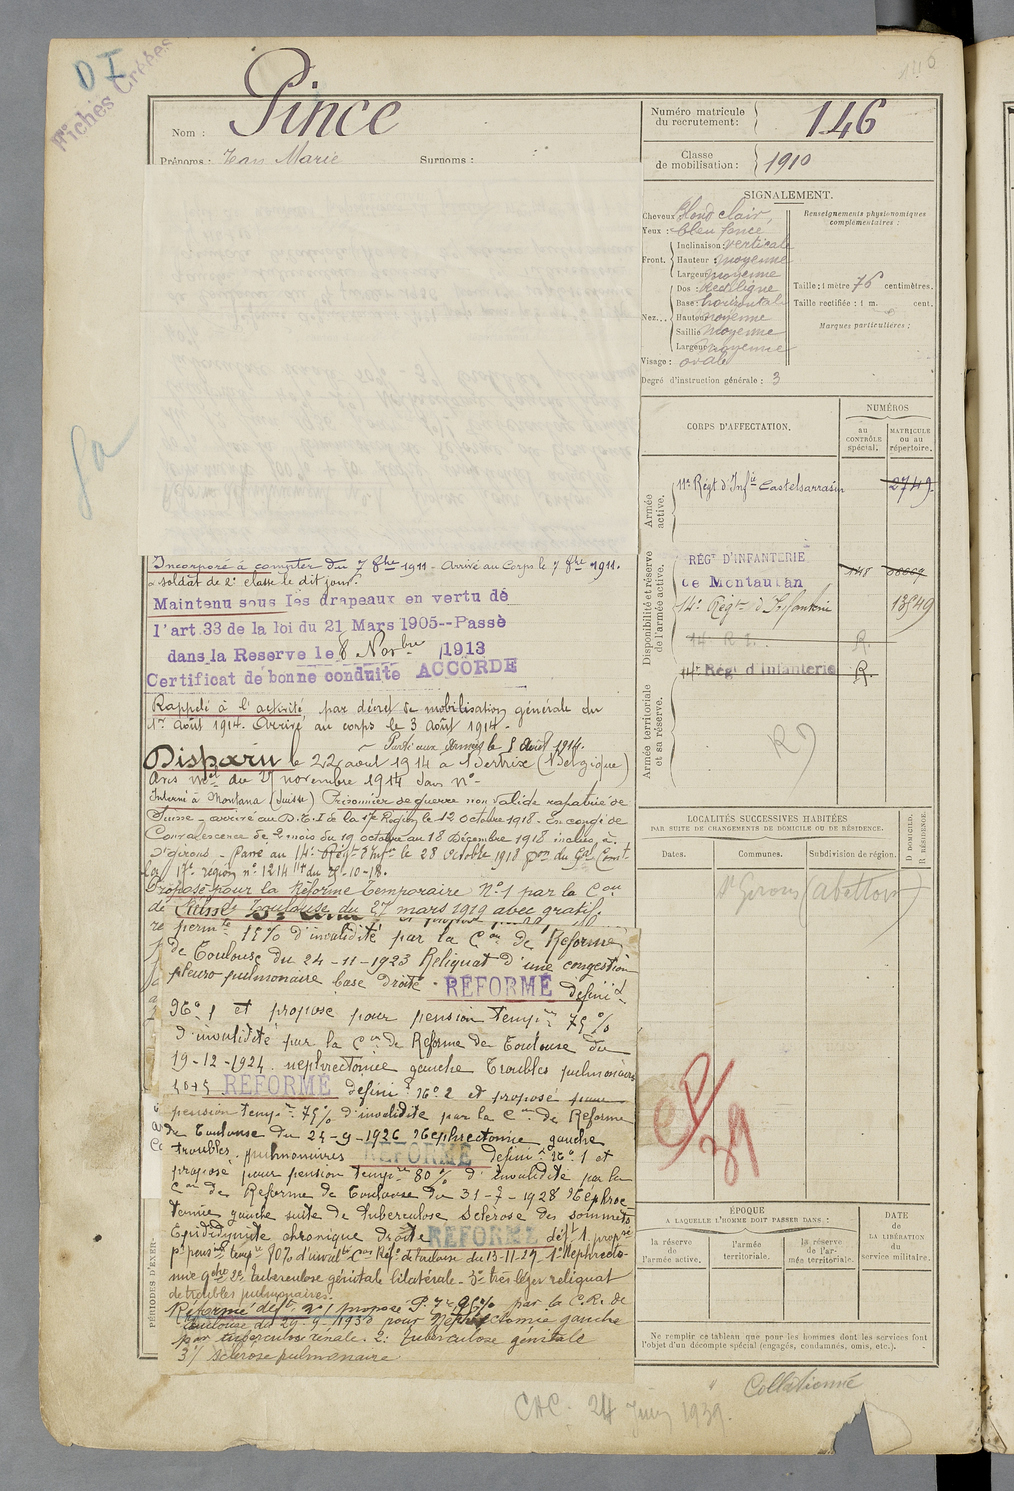 D I
Fichés Créées
Nom : Pince
Prénoms : Jean Marie Surnoms :
Numéro matricule du recrutement: 146
Classe de mobilisation : 1910
SIGNALEMENT.
Cheveux blond clair,
Yeux : bleu foncé
Front. Inclinaison: verticale
Hauteur : moyenne
Largeur moyenne
Nez... Dos : Rectiligne
Base : horizontale
Hauteur moyenne
Saillie moyenne
Largeur moyenne
Visage : ovale
Degré d'instruction générale : 3
Renseignements physionomiques complémentaires :
Taille : 1 mètre 76 centimètres.
Taille rectifiée : 1 m. cent.
Marques particulières :
CORPS D'AFFECTATION.
NUMÉROS
au CONTRÔLE spécial.
MATRICULE ou au répertoire.
Armée active.
11e Régt d'Infie Castelsarrasin 2749
Disponibilité et réserve de l'armée active.
RÉGT D'INFANTERIE
de Montauban
14e Régt d'Infanterie 13549
14e R. I. R.
14e Régt d'Infanterie R.
Armée territoriale et sa réserve.
Incorporé à compter du 7 8bre 1911 - Arrivé au Corps le 7 8bre 1911.
soldat de 2e classe le dit jour.
Maintenu sous les drapeaux en vertu de
l'art. 33 de la loi du 21 Mars 1905--Passé
dans la Reserve le 8 Novbre 1913
Certificat de bonne conduite ACCORDÉ
Rappelé à l'activité par décret de mobilisation générale du
1er Août 1914. Arrivé au corps le 3 Août 1914.
Parti aux Armées le 5 Août 1914.
Disparu le 22 août 1914 à Bertrix (Belgique)
Avis mel du 27 novembre 1914 sans No-
Interné à Montana (Suisse) Prisonnier de guerre non valide rapatrié de
Suisse - arrivé au D.T.I de la Région le 12 octobre 1918. En congé de
Convalescence de 2 mois du 19 octobre au 18 Décembre 1918 inclus à
St Girons - Passé au 14e Régt d'Infie le 28 octobre 1918 Gal Comt
la 17e région no 1214
Proposé pour la Réforme temporaire No 1 par la Con
de Toulouse du 27 mars 1919 avec gratif.
permte 15% d'invalidité par la Con de Réforme
de Toulouse du 24-11-1923 Reliquat d'une congestion
pleuro pulmonaire base droite. RÉFORMÉ définit
No 1 et proposé pour pension tempre 75%
d'invalidité par la Con de Réforme de Toulouse du
19-12-1924. nephrectomie gauche troubles pulmonaires
40+5 RÉFORMÉ définit No 2 et proposé pour
pension tempre 75% d'invalidité par la Con de Réforme
de Toulouse du 24-9-1926 Néphrectomie gauche
troubles pulmonaires RÉFORMÉ définit No 1 et
proposé pour pension tempre 80% d'Invalidité par la
Con de Réforme de Toulouse du 31-7-1928 Néphrec
tomie gauche suite de tuberculose Sclérose des sommets
Epididymite chronique droite RÉFORMÉ déft 1. proposé
pr pension tempre 80% d'invalté Con Réfe de Toulouse du 13-11-29 - 1o Néphrecto-
mie gche 2o tuberculose génitale bilatérale - 3o très léger reliquat
de troubles pulmonaires.
Réformé déft no 1 proposé P. par la C.R. de
Toulouse du 29-9-1930 pour Néphrectomie gauche
par tuberculose rénale. 2: tuberculose génitale
3/ Sclérose pulmonaire
PÉRIODES D'EXER-
LOCALITÉS SUCCESSIVES HABITÉES
PAR SUITE DE CHANGEMENTS DE DOMICILE OU DE RÉSIDENCE.
Dates.
Communes.
Subdivision de région.
D DOMICILE. R RÉSIDENCE.
St Girons
ÉPOQUE
A LAQUELLE L'HOMME DOIT PASSER DANS :
la réserve de l'armée active.
l'armée territoriale.
la réserve de l'armée territoriale.
DATE de LA LIBÉRATION du service militaire.
Ne remplir ce tableau que pour les hommes dont les services font
l'objet d'un décompte spécial (engagés, condamnés, omis, etc.).
Collationné
24 Juin 1939.